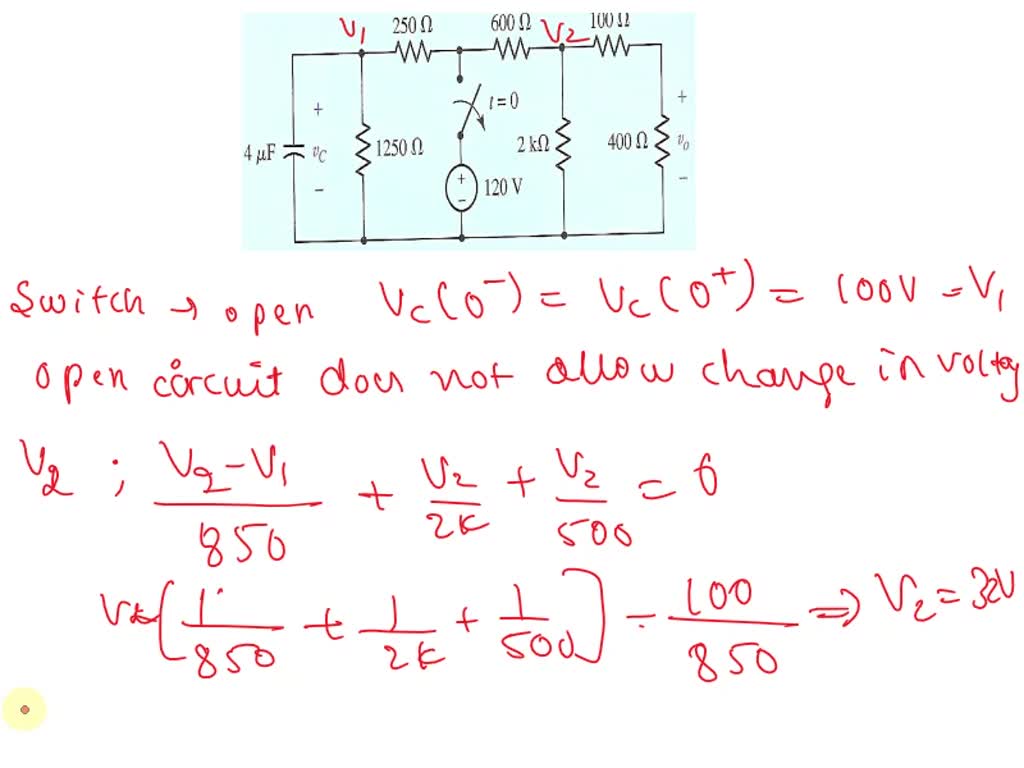 V1 250 Ω 600 Ω V2 100 Ω
+ t=0 +
4 μF vC 1250 Ω 2 kΩ 400 Ω vo
− + − 120 V −
Switch → open Vc(0⁻) = Vc(0⁺) = 100V = V1
open circuit does not allow change in
V2 ; (V2 − V1)/850 + V2/2K + V2/500 = 0
[1/850 + 1/2K + 1/500] = 100/850 ⇒ V2 = 32V